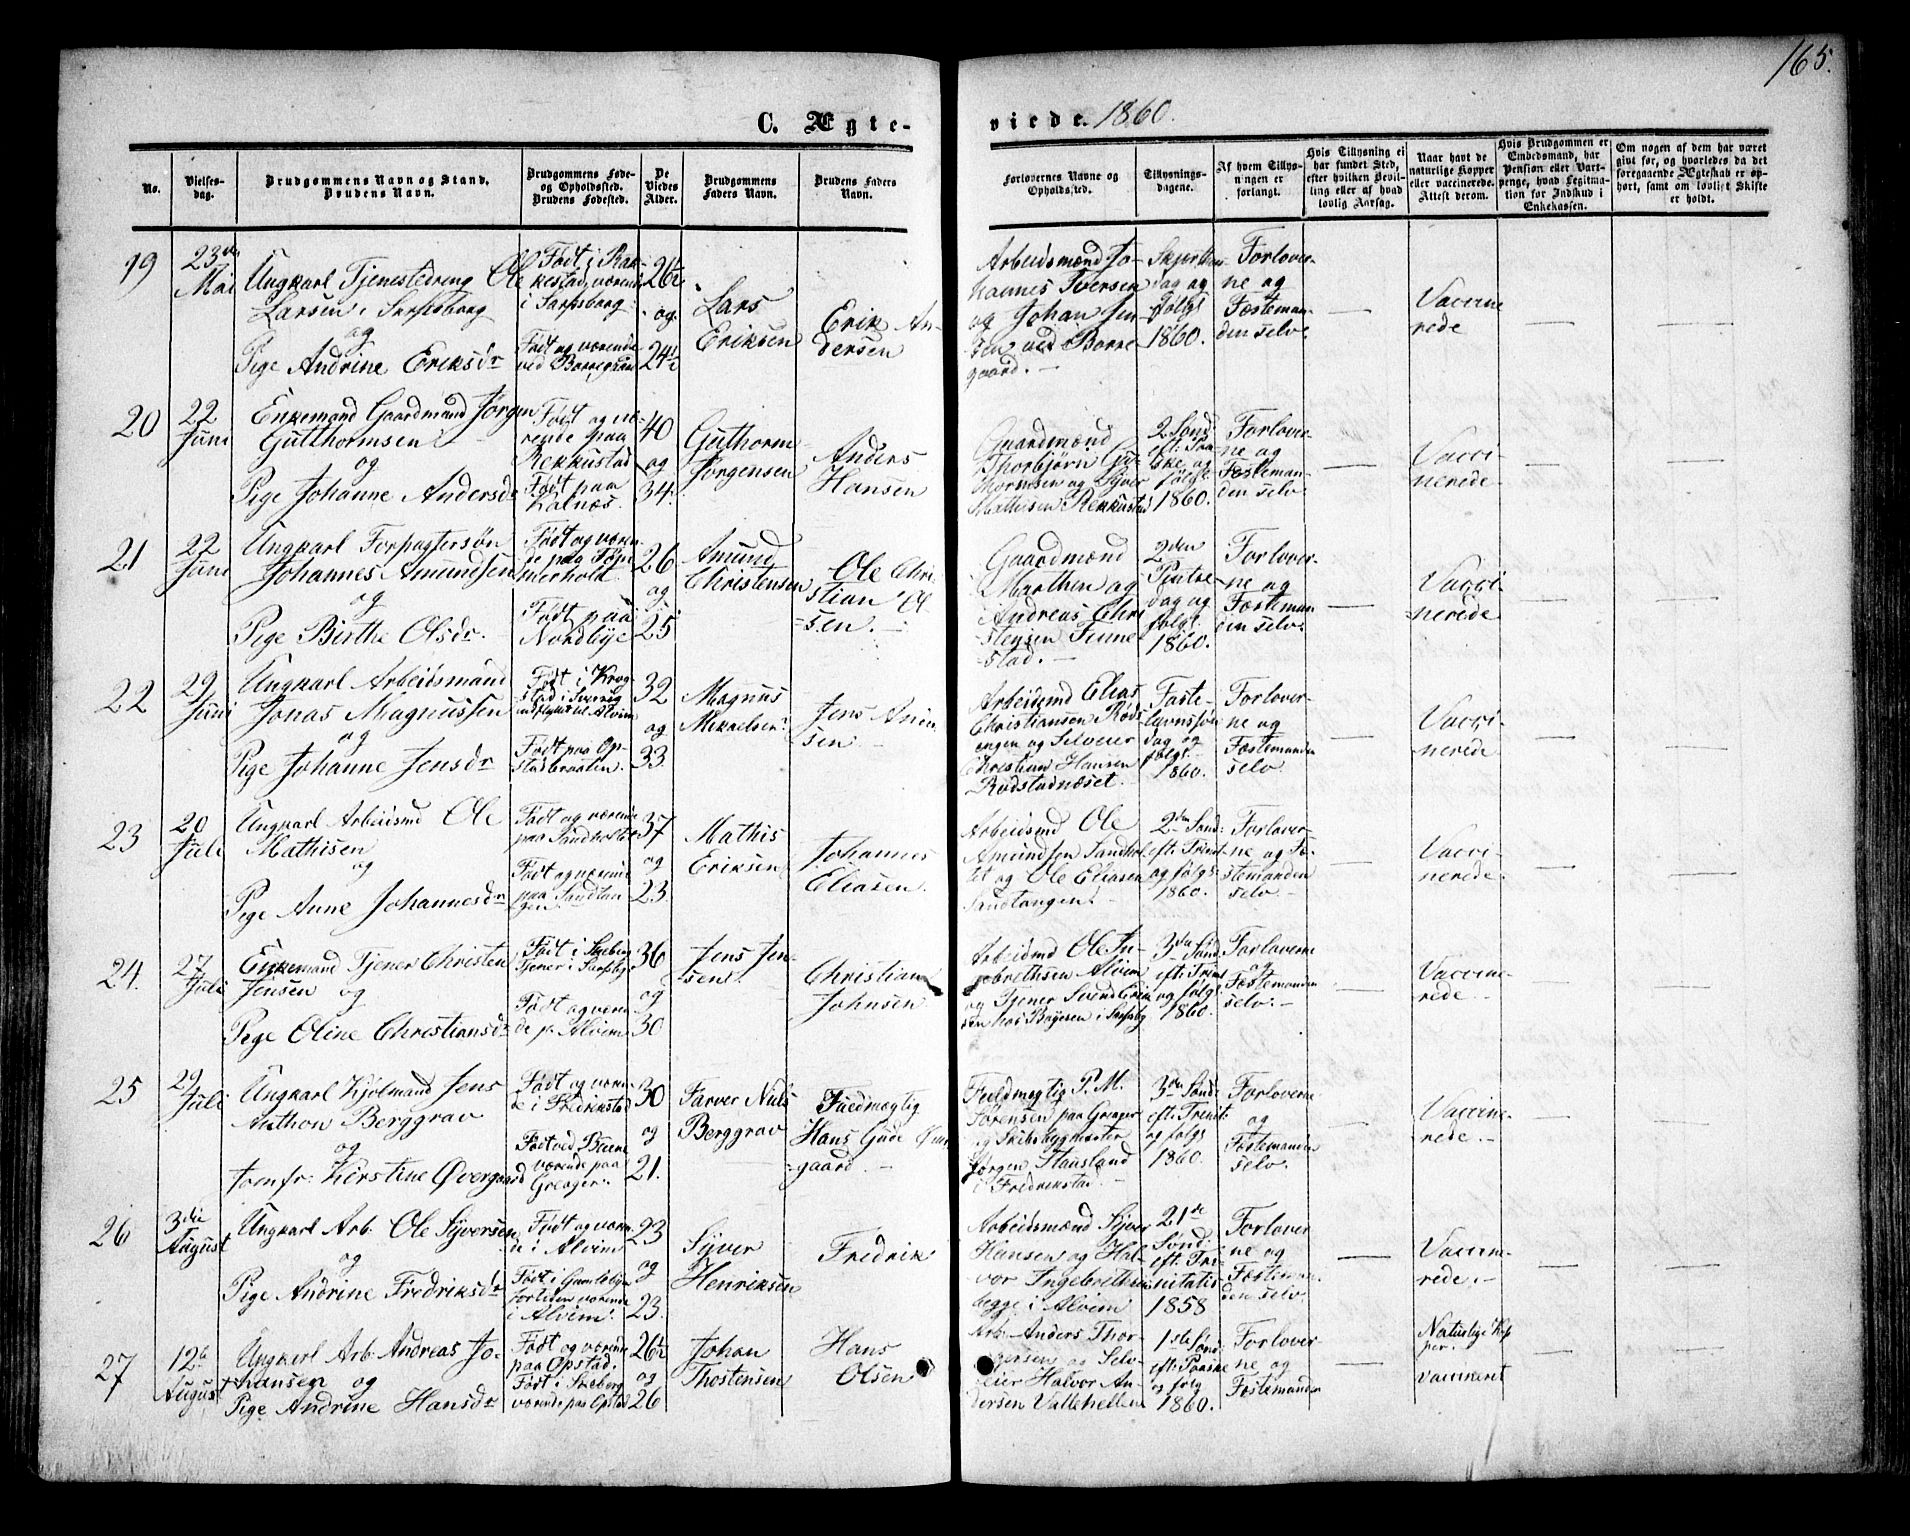 165.
C. Ægteviede. 1860.
No.
Vielsesdag.
Brudgommens Navn og Stand.
Brudens Navn.
Brudgommens Føde-
og Opholdssted.
Brudens Fødested.
De
Viedes
Alder.
Brudgommens
Faders Navn.
Brudens Faders
Navn.
Forlovernes Navne og
Opholdssted.
Tillysnings-
dagene.
Af hvem Tillys-
ningen er
forlangt.
Hvis Tillysning ei
har fundet Sted,
efter hvilken Bevil-
ling eller af hvad
lovlig Aarsag.
Naar havt de
naturlige Kopper
eller vaccinerede.
Attest derom.
Hvis Brudgommen er
Embedsmand, har
Pension eller Vart-
penge, hvad Legitima-
tion for Indskud i
Enkekassen.
Om nogen af dem har været
givt før, og hvorledes da det
foregaaende Ægteskab er op-
hørt, samt om lovligt Skifte
er holdt.
19
23de
Mai
Ungkarl Tjenestedreng Ole
Larsen i Sarpsborg
og
Pige Andrine Eriksdr
Født i Rak-
kestad, værende
i Sarpsborg
Født og værende
ved Borregaard
26½
og
24½
Lars
Eriksen
Erik An-
dersen
Arbeidsmænd Jo-
hannes Iversen
og Johan Jen-
sen ved Borre
gaard. —
Skjærthors
dag og
følgs
1860.
Forlover-
ne og
Fæsteman-
den selv
Vaccine
rede
20
22
Juni
Enkemand Gaardmand Jørgen
Gutthormsen
og
Pige Johanne Andersdr
Født og væ-
rende paa
Rekkustad
Født paa
Kalnæs.
40
og
34.
Guthorm
Jørgensen
Anders
Hansen
Gaardmænd
Thorbjørn Gut-
thormsen og Syver
Mathisen Rekkustad
2 Sønd:
eft: Paa
ske og
følgs
1860.
Forlover-
ne og
Fæsteman-
den selv
Vacci-
nerede
21
22
Juni
Ungkarl Forpagtersøn
Johannes Amundsen
og
Pige Birthe Olsdr.
Født og væren-
de paa Tøm
merholt
Født paa
Nordbye
26
og
25
Amund
Christensen
Ole Chri-
stian Ol-
sen. —
Gaardmænd
Marthin og
Andreas Chri
stensen Finne
stad. —
2den
Pintse
dag og
følgs
1860.
Forlover-
ne og
Fæsteman
den selv:
Vacci-
nerede
22
29
Juni
Ungkarl Arbeidsmand
Jonas Magnussen
og
Pige Johanne Jensdr
Født i Krog-
stad i Sverig
indflyttet til Alvim
Født paa Op-
stadbraaten.
32
og
33
Magnus
Mikaelsen
Jens Anun
sen
Arbeidsmd Elias
Christiansen Røds
engen og Selveier
Christian Hansen
Rødstadnæset.
Faste-
lavnssøn
dag og
følgs
1860.
Forlover-
ne og
Fæstemanden
selv
Vacci-
nerede
23
20
Juli
Ungkarl Arbeidsmd Ole
Mathisen
og
Pige Anne Johannesdr
Født og værende
paa Sandholtet
Født og værende
paa Sandtan
gen
37
og
23
Mathis
Eriksen
Johannes
Eliasen.
Arbeidsmd Ole
Amundsen Sandhol-
tet og Ole Eliasen
Sandtangen
2den Sønd:
eft: Trinit:
og følgs
1860.
Forlover-
ne og Fæ-
stemanden
selv
Vacci-
nerede
24.
27
Juli
Enkemand Tjener Christen
Jensen og
Pige Oline Christiansdr
Født i Skeberg
Tjener i Sarpsbg
Født og væren
de p. Alvim
36
og
30
Jens Jen-
sen
Christian
Johnsen
Arbeidsmd Ole In-
gebrethsen Alvim
og Tjener Svend Erik
sen hos Bøyesen i Sarpsbg
3de Sønd:
eft: Trinit
og følgs
1860.
Forloverne
og
Fæstemanden
selv. —
Vaccine-
rede. —
25
29
Juli
Ungkarl Kjølmand Jens
Mathon Berggrav
og
Jomfr: Kirstine Øvergaard
Født og væren
de i Fredrikstad
Født ved Bærne
værende paa
Greager.
30
og
21.
Farver Niels
Berggrav
Fuldmægtig
Hans Gude Øver
gaard. —
Fuldmægtig P. M.
Sørensen paa Greager
og Skibsbygmester
Jørgen Stausland
i Fredrikstad.
3de Sønd:
eft: Trinit:
og følgs
1860.
Forloverne
og
Fæstemanden
selv.
Vaccine-
rede. —
26
3die
August
Ungkarl Arb. Ole Syversen
og
Pige Andrine Fredriksdr
Født og væren-
de i Alvim
Født i Gamlebyen
fortiden værende
i Alvim.
23
og
23.
Syver
Henriksen
Fredrik
Arbeidsmænd Syver
Hansen og Hal-
vor Ingebrethsen
begge i Alvim
21de
Sønd:
eft: Tri-
nitatis
1858
Forlover
ne og
Fæsteman
den selv.
Vaccine-
rede. —
27
12te
August
Ungkarl Arb. Andreas Jo-
hansen og
Pige Andrine Hansdr
Født og værende
paa Opstad.
Født i Skeberg
værende paa Opstad
26½
og
26
Johan
Thostensen
Hans
Olsen
Arb. Anders Thor-
gersen og Selv-
eier Halvor An-
dersen Vallehellen
1ste Sønd
eft: Paaske
og følg
1860.
Forlover
ne og
Fæstemanden
Naturlige Kop
per.
vaccineret